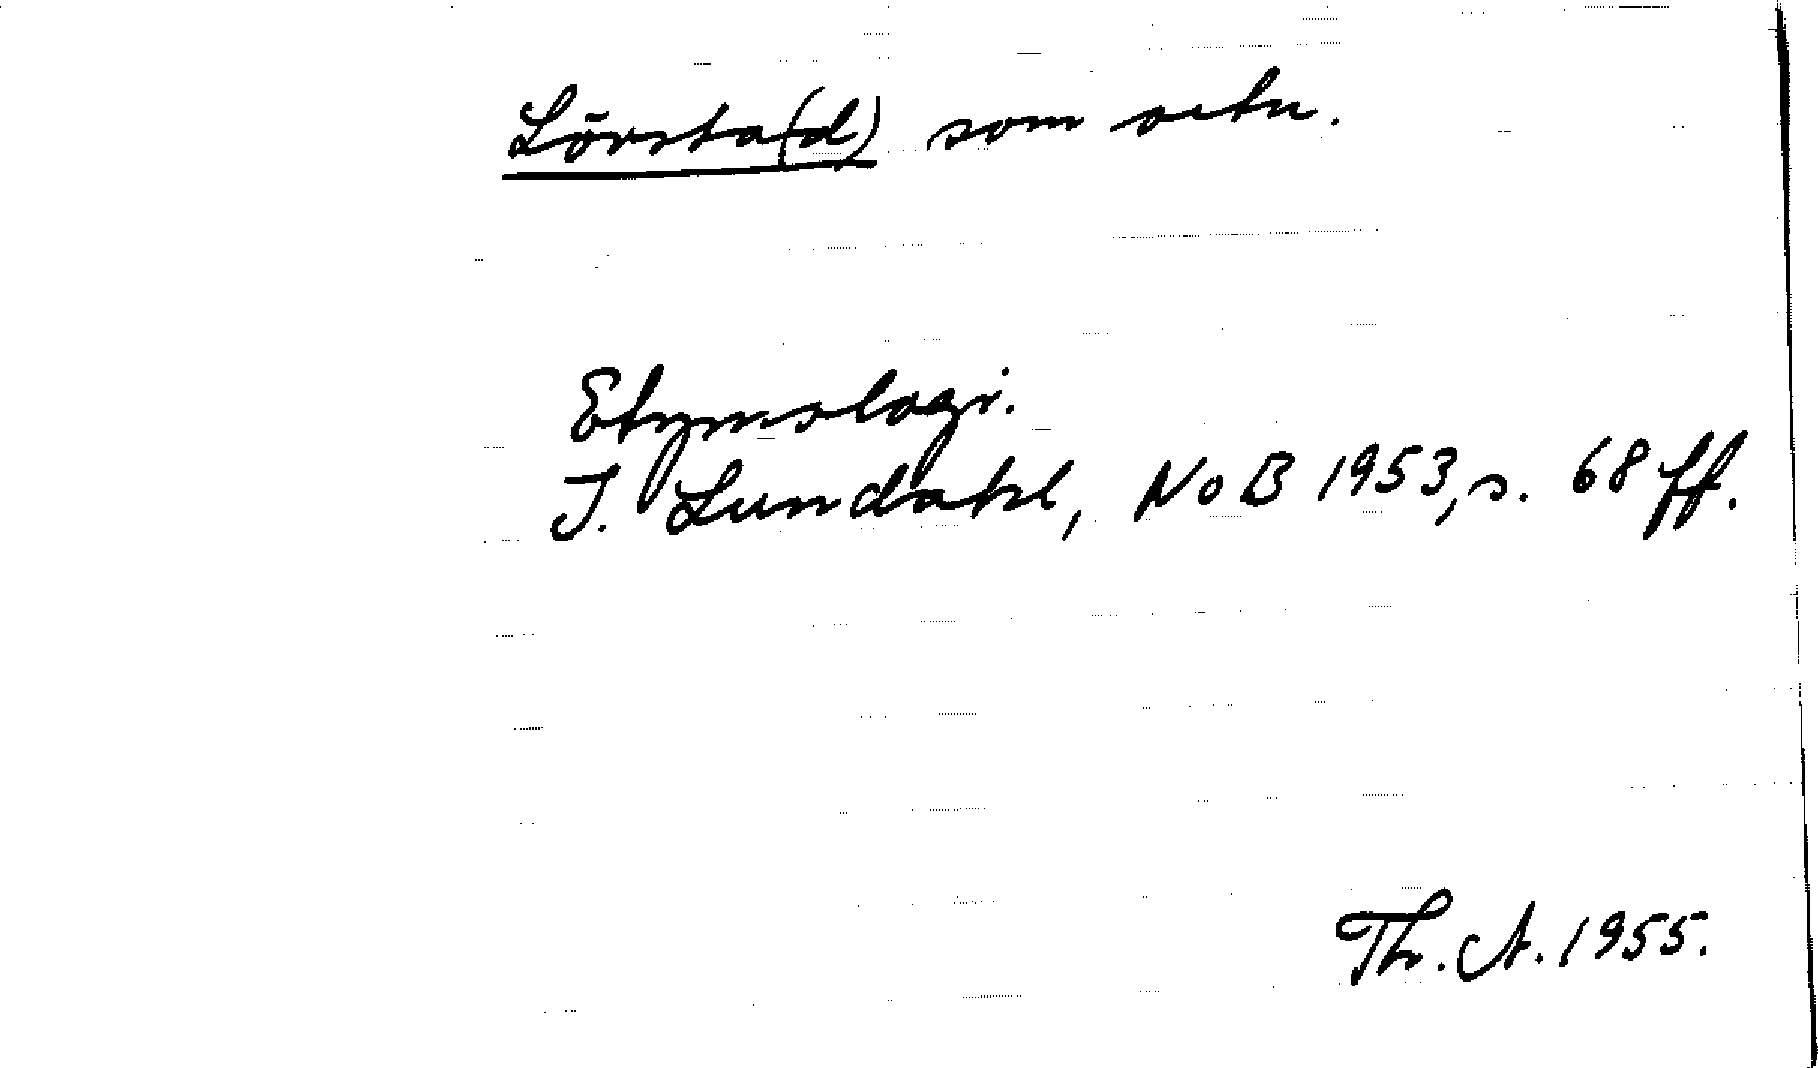 Lörsta(d) som ortn.
Etymologi.
I. Lundahl, NoB 1953, s. 68 ff.
Th. A. 1955.